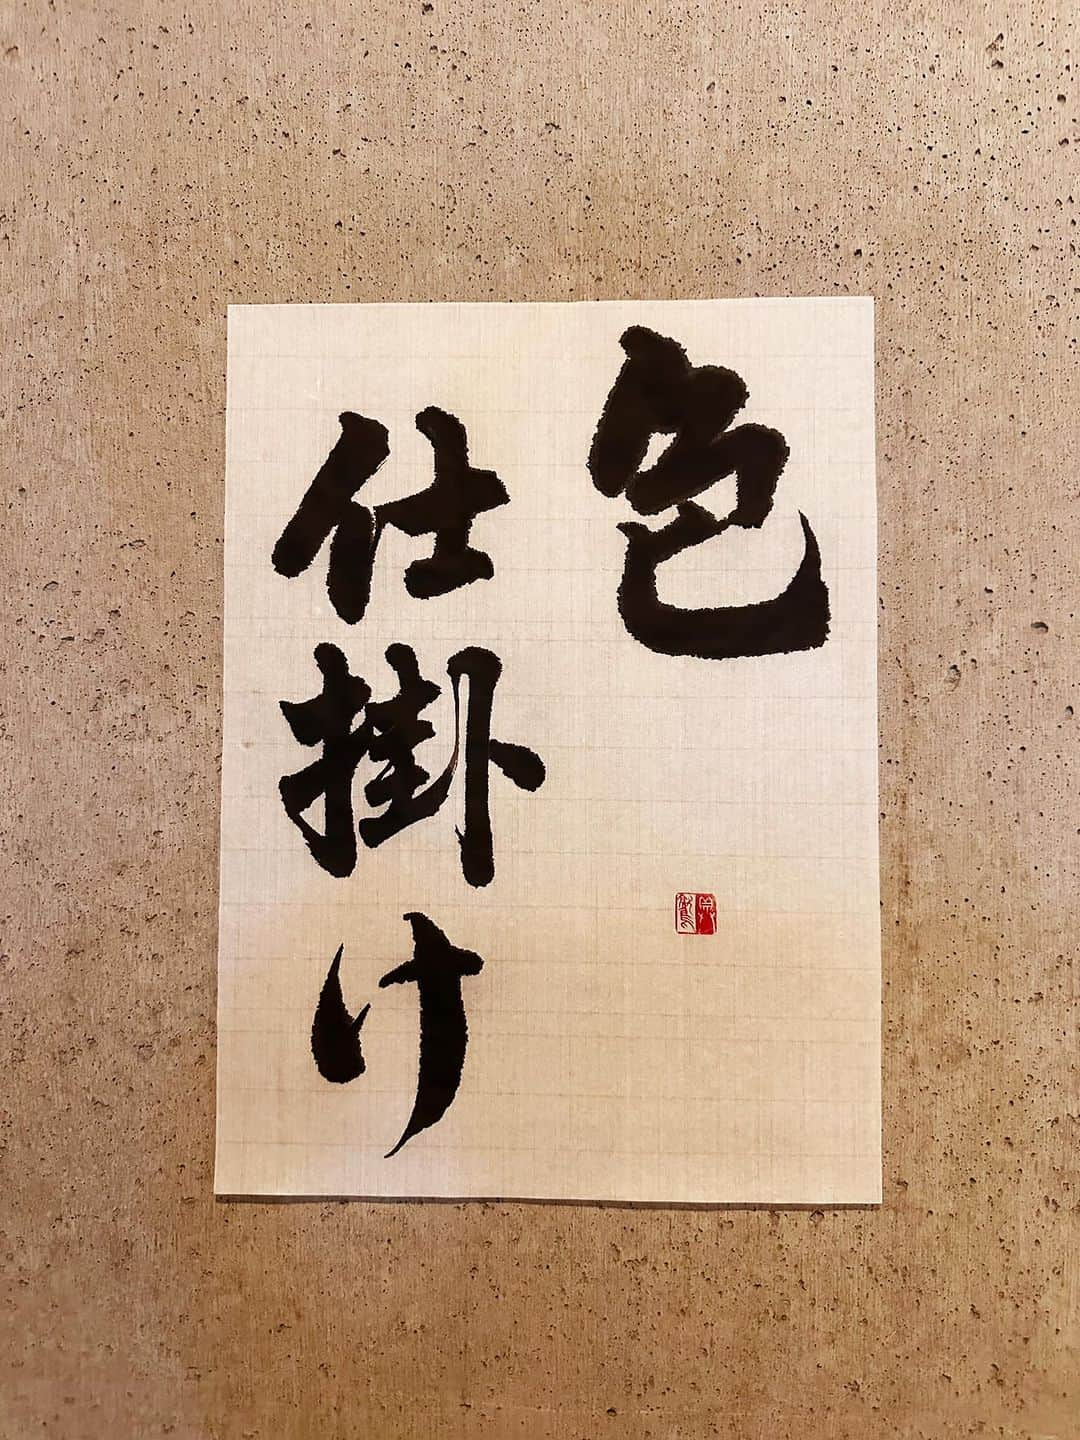 色
仕掛け